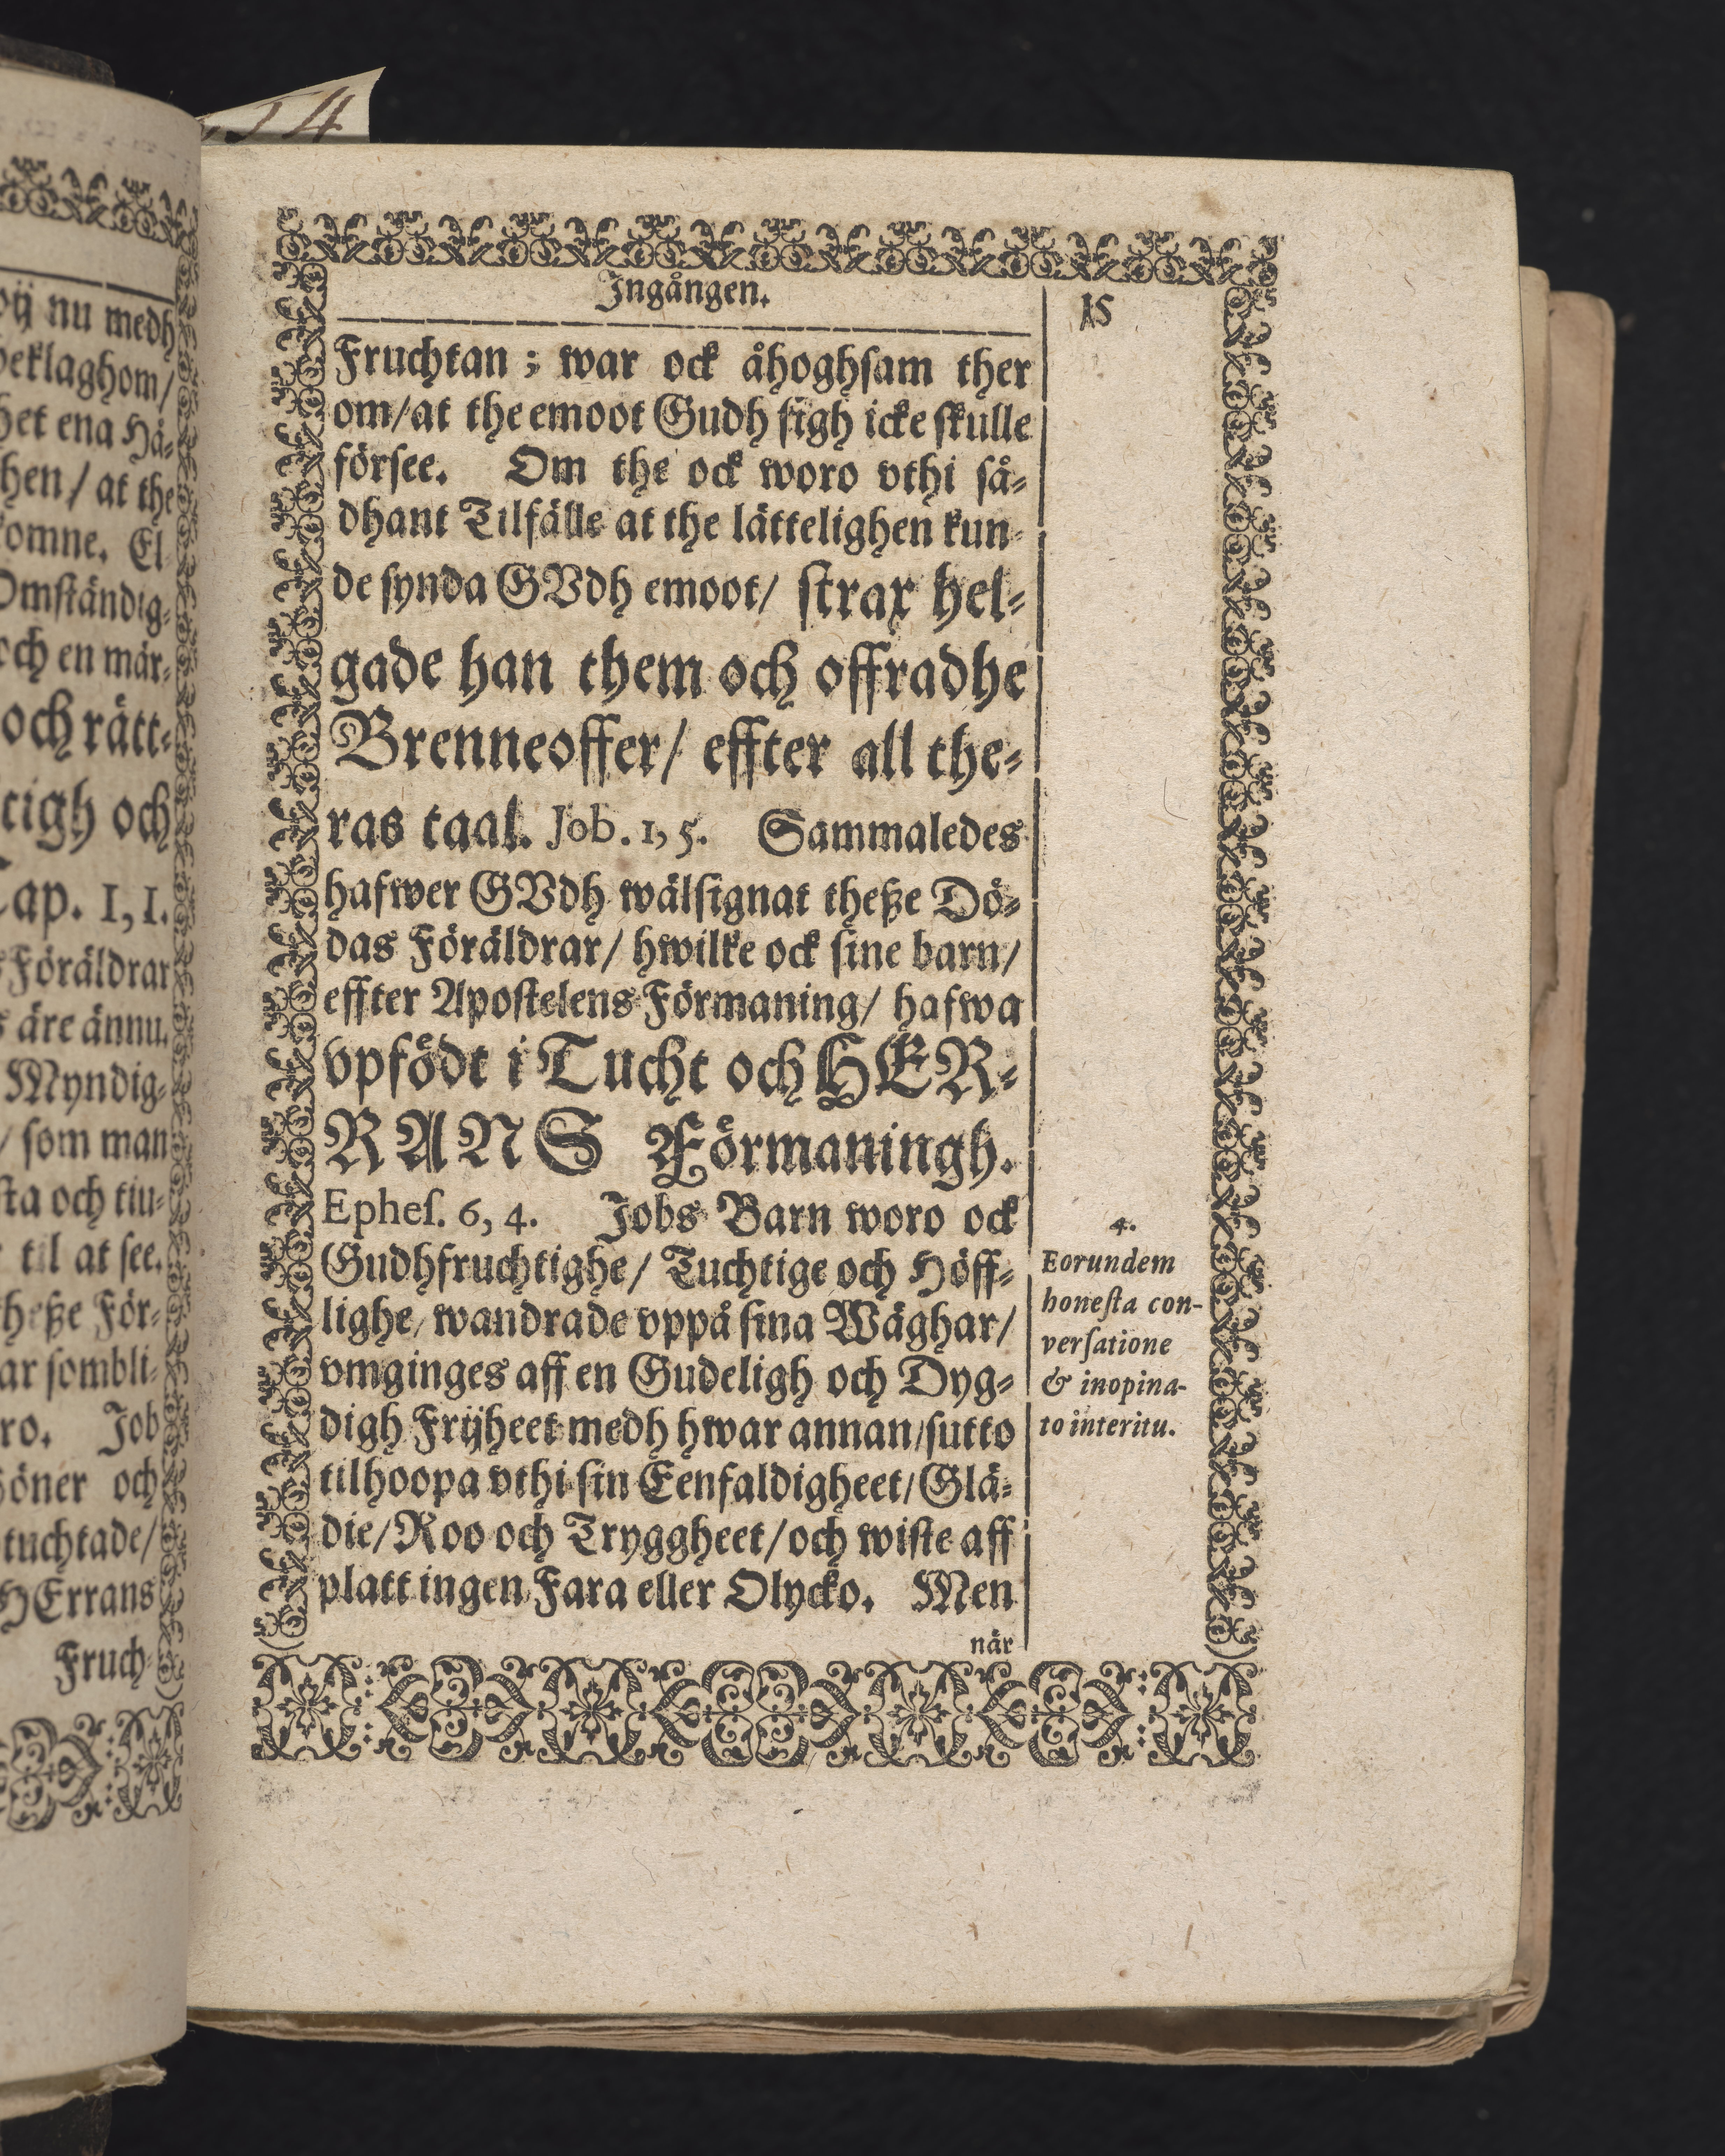 54
oij nu medh
beklaghom/
het ena Hä-
hen/ at the
komne. El
Omständig-
och en mär-
och rätt-
tigh och
Cap. 1, 1.
Föräldrar
s äre ännu.
Myndig-
/ som man
sta och tiu-
til at see.
theße För-
ar sombli-
ro. Job
öner och
tuchtade/
HErrans
Fruch-
Ingången.
15
Fruchtan ; war ock åhoghsam ther
om/at the emoot Gudh sigh icke skulle
försee. Om the ock woro vthi så-
dhant Tilfälle at the lätteligen kun-
de synda GVdh emoot/ strax hel-
gade han them och offradhe
Brenneoffer/ effter all the-
ras taal. Job. 1, 5. Sammaledes
hafwer GVdh wälsignat theße Dö-
das Föräldrar/ hwilke ock sine barn/
effter Apostelens Förmaning/ hafwa
vpfödt i Tucht och HER-
RANS Förmaningh.
Ephes. 6, 4. Jobs Barn woro ock
Gudhfruchtighe/ Tuchtige och Höff-
lighe/ wandrade vppå sina Wäghar/
vmginges aff en Gudeligh och Dyg-
digh Frijheet medh hwar annan/sutto
tilhoopa vthi sin Eenfaldigheet/Glä-
die/Roo och Tryggheet/och wiste aff
platt ingen Fara eller Olycko. Men
när
4.
Eorundem
honesta con-
versatione
& inopina-
to interitu.